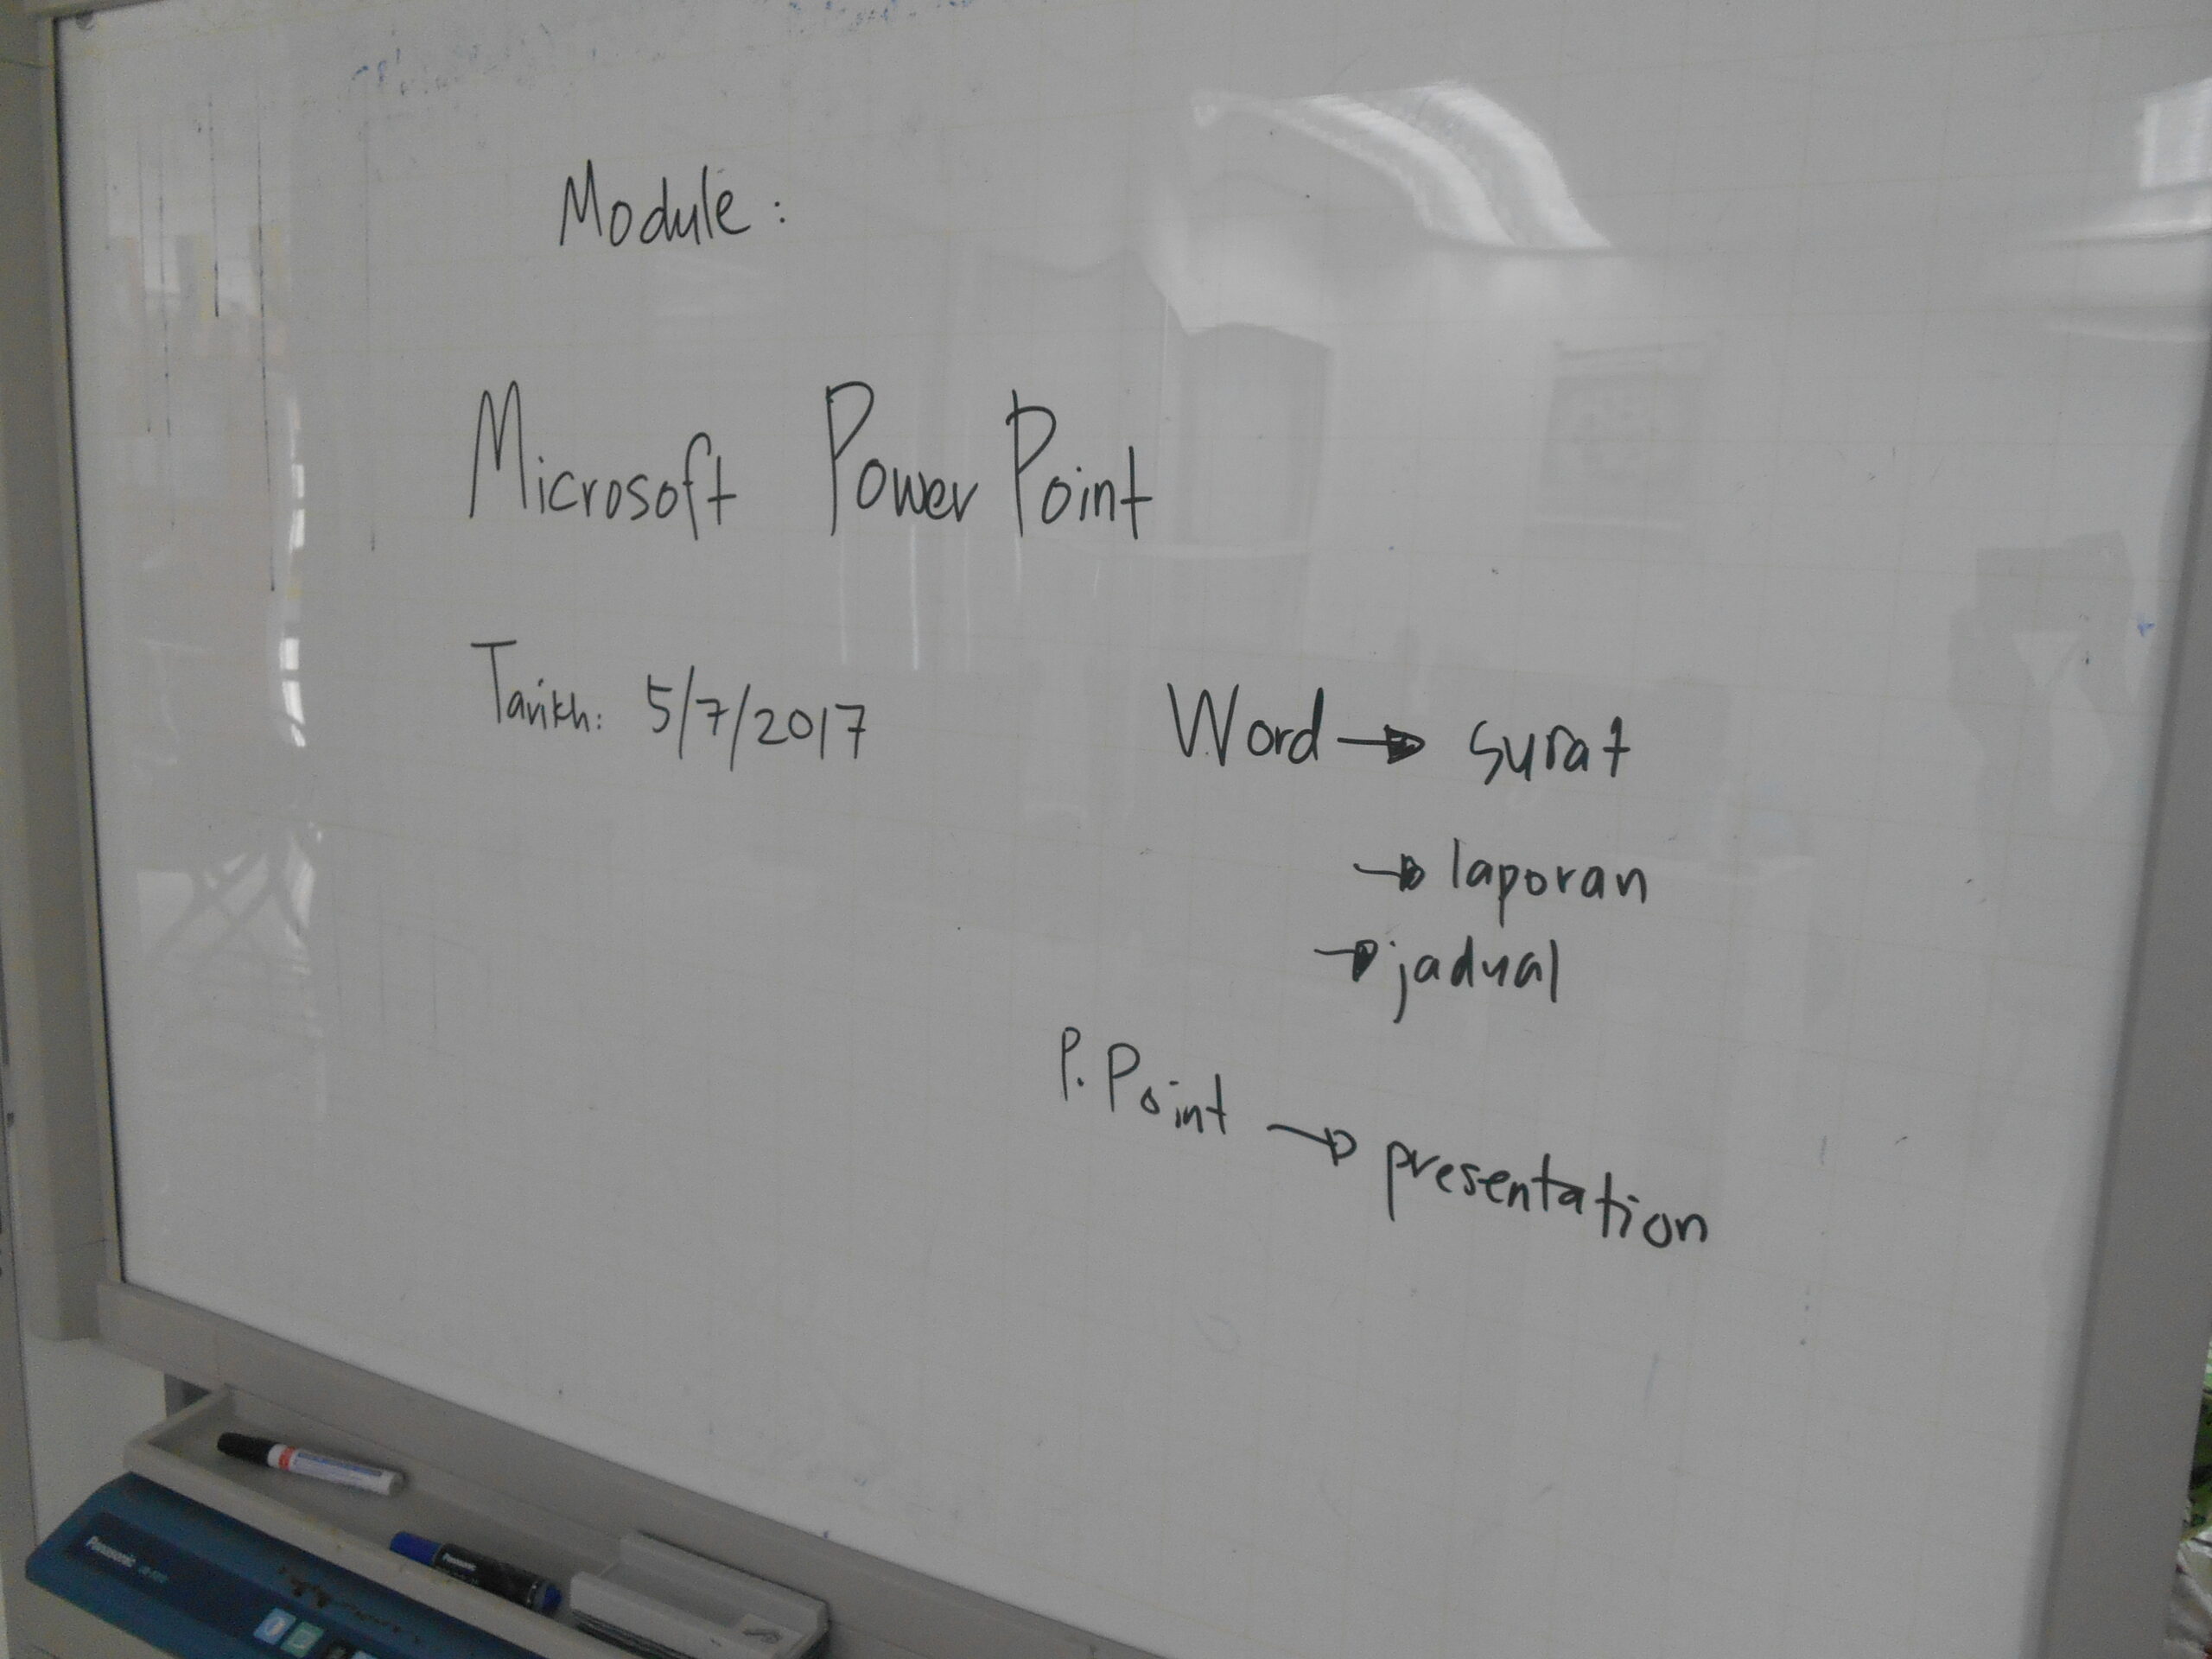 Module:
Microsoft PowerPoint
Tarikh: 5/7/2017
Word → surat
→ laporan
→ jadual
P. Point → presentation
Panasonic
Panasonic